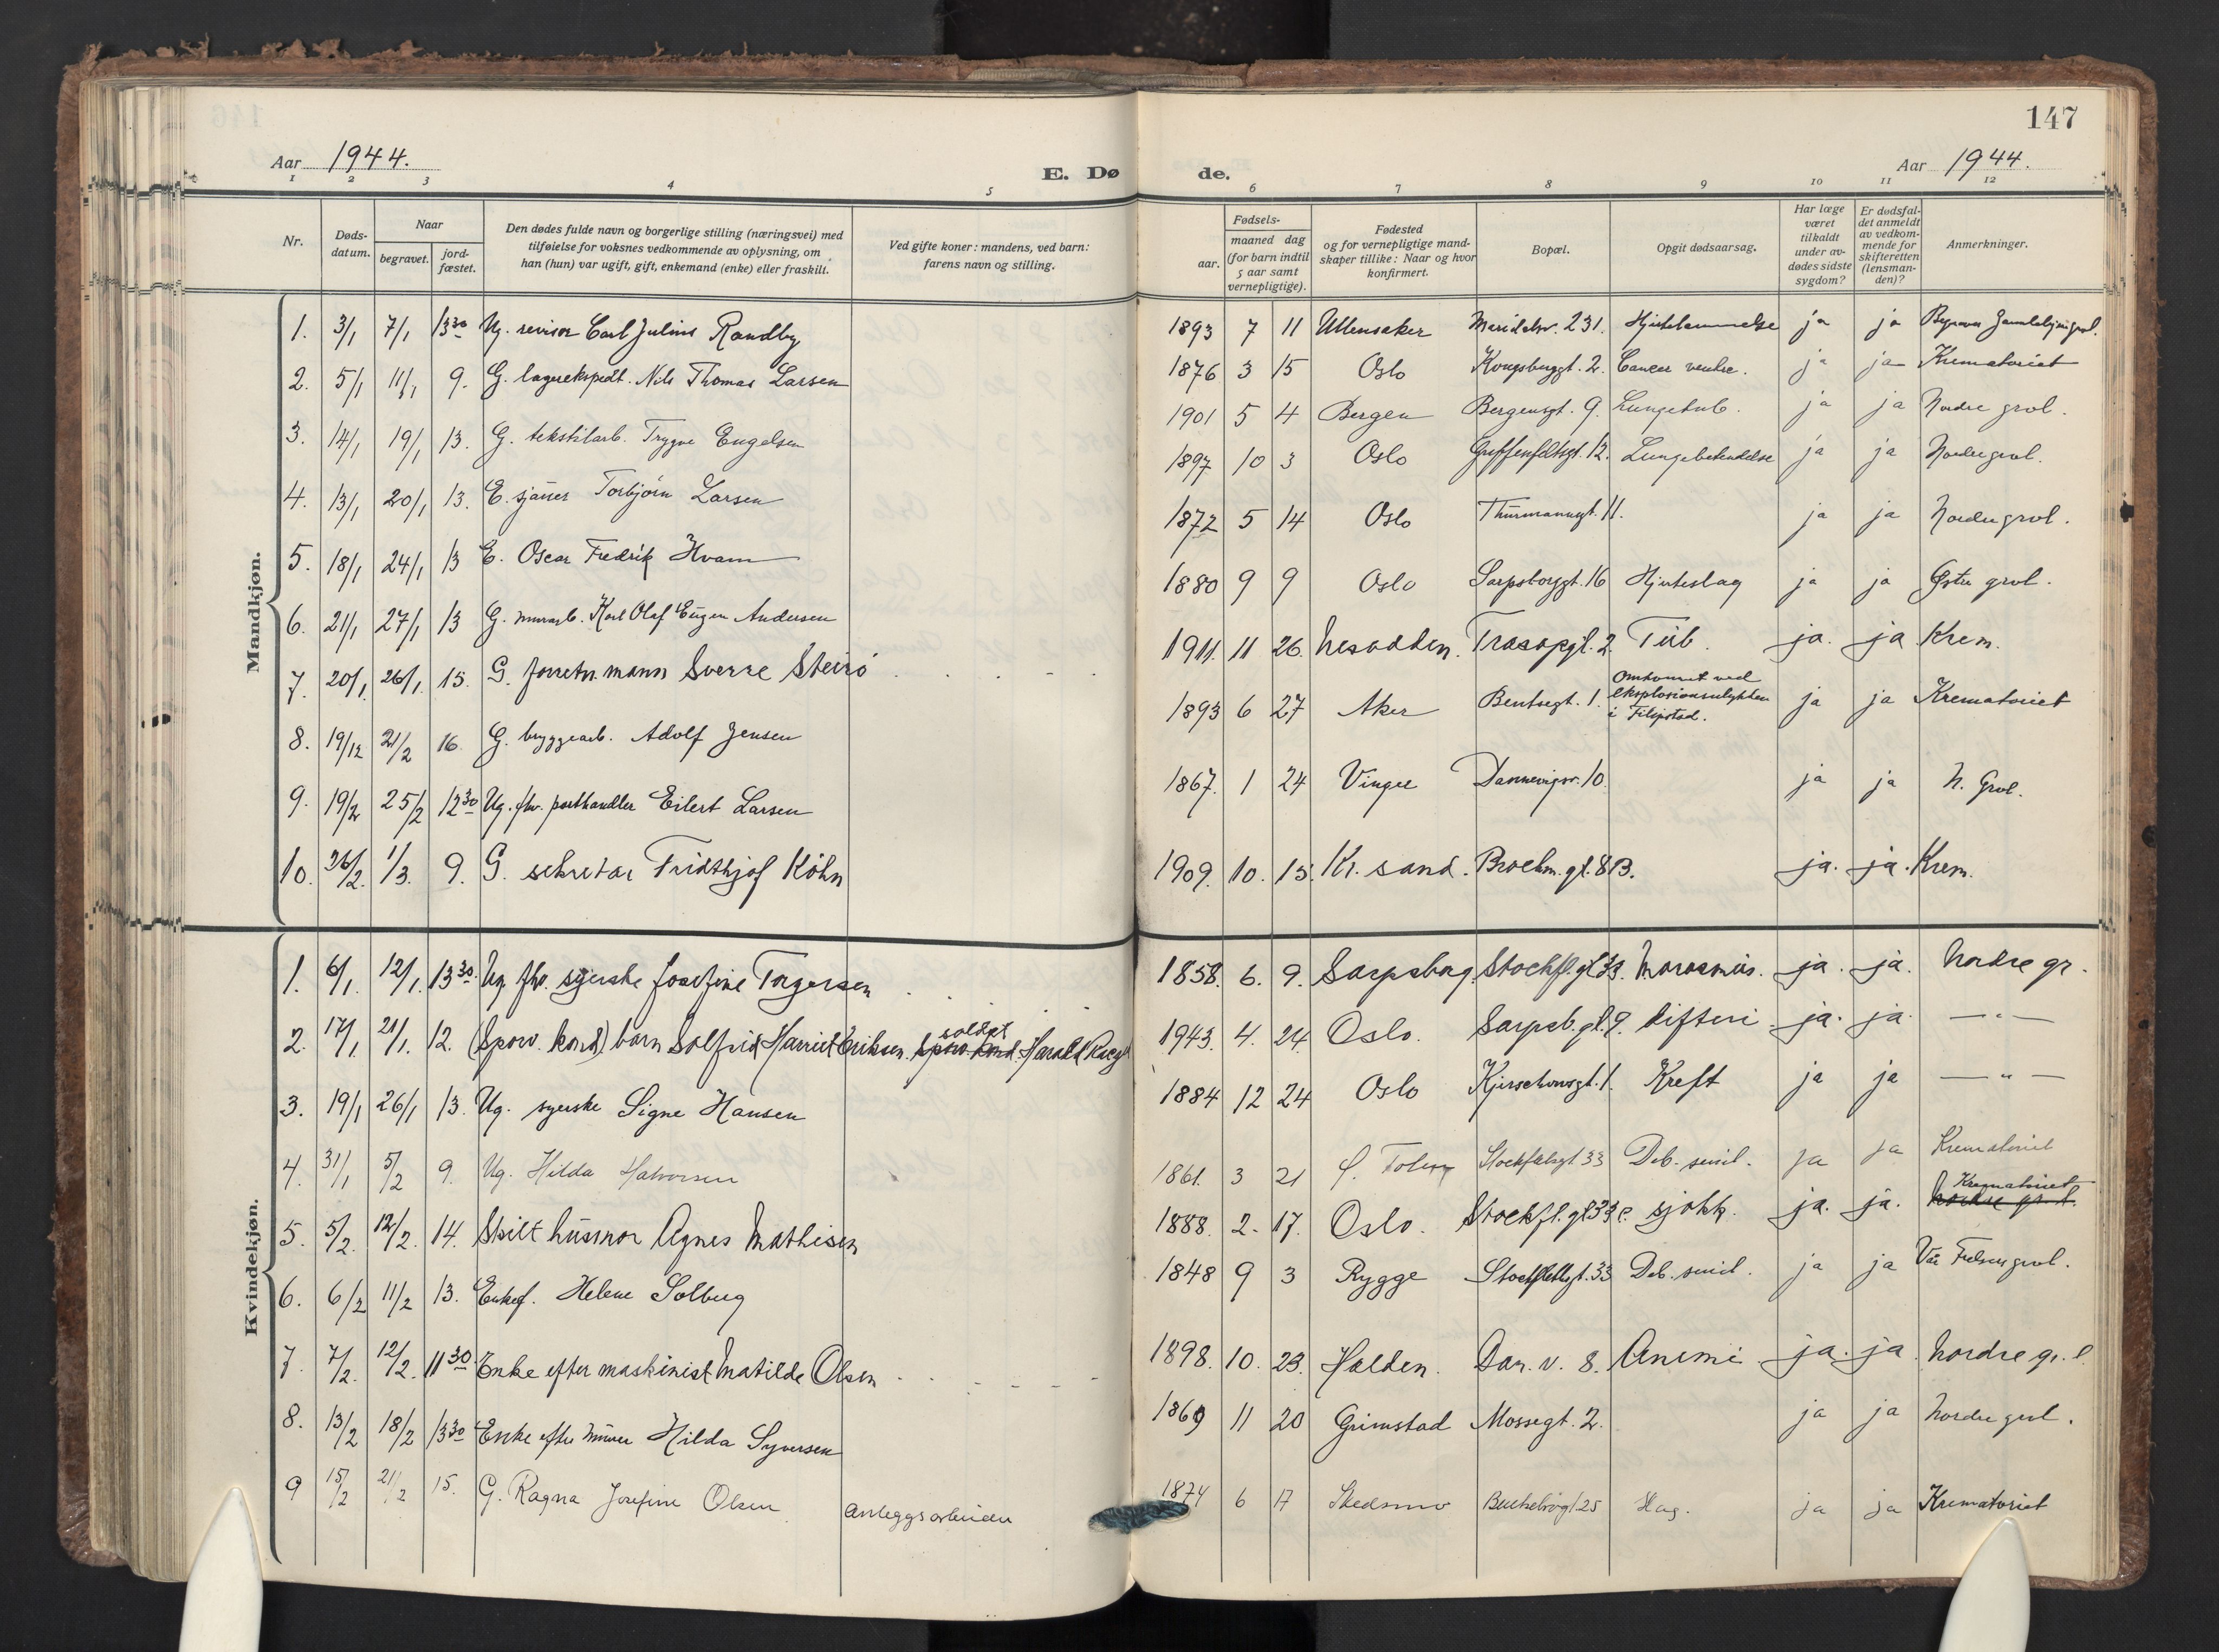 147
Aar 1944.
E. Døde.
Aar 1944.
1 2 3 4 5 6 7 8 9 10 11 12
Nr.
Døds-datum.
Naar
begravet.
jord-fæstet.
Den dødes fulde navn og borgerlige stilling (næringsvei) med
tilføielse for voksnes vedkommende av oplysning, om
han (hun) var ugift, gift, enkemand (enke) eller fraskilt.
Ved gifte koner: mandens, ved barn:
farens navn og stilling.
Fødsels-
aar.
maaned dag
(for barn indtil
5 aar samt
vernepligtige).
Fødested
og for vernepligtige mand-
skaper tillike: Naar og hvor
konfirmert.
Bopæl.
Opgit dødsaarsag.
Har læge
været
tilkaldt
under av-
dødes sidste
sygdom?
Er dødsfal-
det anmeldt
av vedkom-
mende for
skifteretten
(lensman-
den)?
Anmerkninger.
Mandkjøn.
1. 3/1 7/1 13 30 Ug. revisor Carl Julius Randby 1893 7 11 Ullensaker Maridalsv. 231. Hjertelammelse ja ja
2. 5/1 11/1 9. G. lagerekspedt. Nils Thomas Larsen 1876 3 15 Oslo Kongsberggt. 2. Cancer ventre. ja ja Krematoriet
3. 14/1 19/1 13. G. tekstilarb. Trygve Engelsen 1901 5 4 Bergen Bergensgt. 9. Lungetub. ja ja Nordre gravl.
4. 13/1 20/1 13. E. sjauer Torbjørn Larsen 1897 10 3 Oslo Griffenfeldtsgt. 12. Lungebetendelse ja ja Nordre gravl.
5. 18/1 24/1 13 E. Oscar Fredrik Hvam 1872 5 14 Oslo Thurmannsgt. 11. ja ja Nordre gravl.
6. 21/1 27/1 13 G. murarb. Karl Olaf Eugen Andersen 1880 9 9 Oslo Sarpsborggt. 16 Hjerteslag ja ja Østre gravl.
7. 20/1 26/1. 15. G. forretn.mann Sverre Steirö 1911. 11 26. Nesodden. Trasopgt. 2. Tub. ja. ja Krem.
8. 19/12 21/2 16. G. bryggearb. Adolf Jensen 1893 6 27 Aker Bentsegt. 1. Omkommet ved eksplosionsulykken i Filipstad. ja ja Krematoriet
9. 19/2 25/2 12 30 Ug. fhv. posthandler Eilert Larsen 1867. 1 24 Vinger Dannevigsv. 10 ja ja N. Gravl.
10. 26/2. 1/3. 9. G. sekretær Fridthjof Köhn 1909. 10. 15. Kr. sand. Brochm. gt. 8B. ja. ja. Krem.
Kvindekjøn.
1. 6/1. 12/1. 13 30. Ug. fhv. syerske Josefine Torgersen 1858. 6. 9. Sarpsborg. Stockfl. gt. 33. Marasmus. ja. ja. Nordre gr.
2. 17/1. 21/1. 12. (Sporv. kond) barn Solfrid Harriet Eriksen. soldat Sporv. kond. Harald 1943. 4. 24. Oslo. Sarpsb. gt. 9. difteri ja. ja. — " —
3. 19/1 26/1 13. Ug. syerske Signe Hansen 1884 12 24 Oslo Kierschowsgt. 1. Kreft ja ja — " —
4. 31/1 5/2 9. Ug. Hilda Halvorsen 1861. 3 21 Stockfletsgt 33 Deb. senil. ja ja Krematoriet
5. 5/2. 12/2. 14. Skilt husmor Agnes Mathisen 1888. 2. 17. Oslo. Stockfl. gt 33 c. sjokk. ja. ja. Krematoriet Nordre gravl.
6. 6/2 11/2 13. Enkef. Helene Solberg 1848 9 3 Rygge Stockfletsgt. 33 Deb. senil. ja ja Vår Frelsers gravl.
7. 7/2. 12/2. 11 30 Enke efter maskinist Matilde Olsen 1898. 10. 23. Halden. Dan. v. 8. Anemi ja. ja. Nordre gr. l.
8. 13/2 18/2 13 30 Enke efter murer Hilda Syversen 1869 11 20 Grimstad Mossegt. 2. ja ja Nordre gravl.
9 15/2 21/2 15. G. Ragna Josefine Olsen anleggsarbeider 1874 6 17 Skedsmo 25 Slag. ja ja Krematoriet